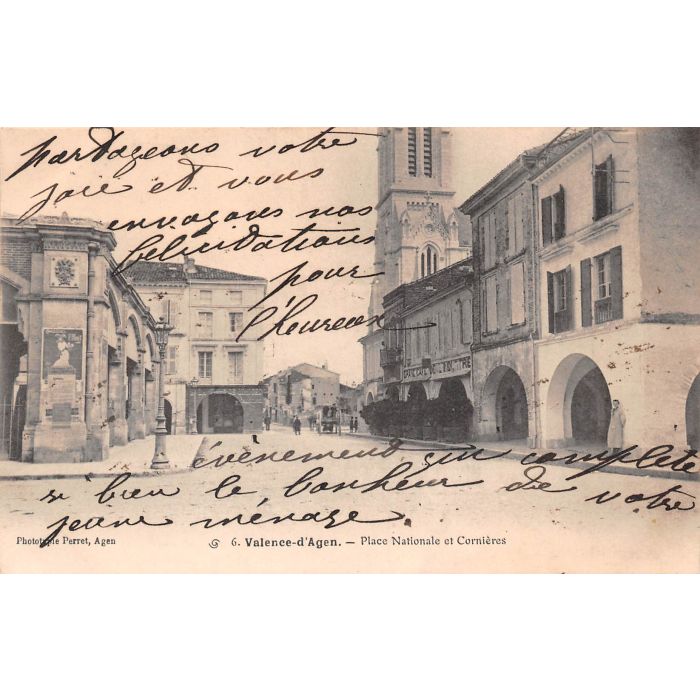 partageons votre
joie et vous
envoyons nos
félicitations
pour
l'heureux
GRAND CAFÉ
évènement qui complète
si bien le bonheur de votre
jeune ménage.
Phototypie Perret, Agen
6. Valence-d'Agen. — Place Nationale et Cornières